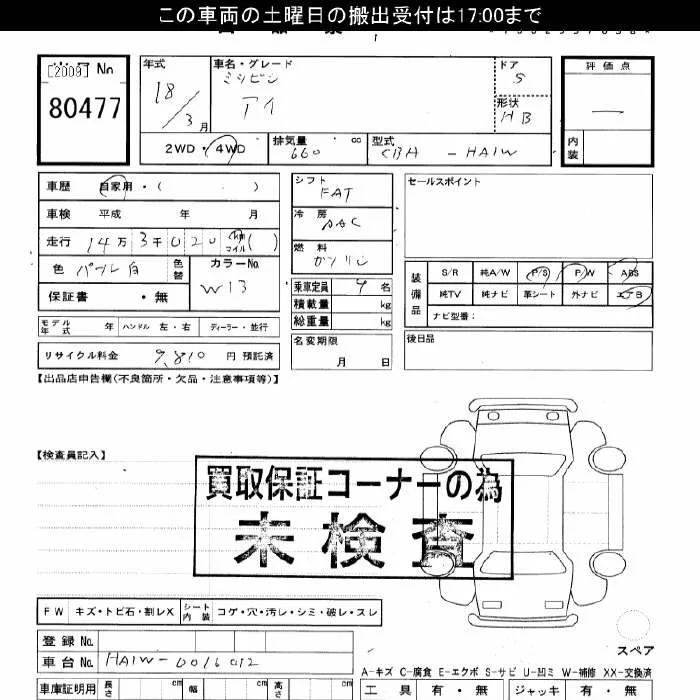 この車両の土曜日の搬出受付は17:00まで
[2009] No
80477
年式
18/3月
車名・グレード
ミツビシ
アイ
ドア
5
形状
HB
評価点
—
内装
2WD・4WD
排気量 660 cc
型式 CBA - HA1W
車歴 自家用・( )
車検 平成 年 月
走行 14万3千020 km マイル ( )
色 パール白 色替
カラーNo. W13
保証書 ・無
シフト
FAT
冷房
AAC
燃料
ガソリン
乗車定員 4名
積載量 kg
総重量 kg
セールスポイント
装備品
S/R 純A/W P/S P/W ABS
純TV 純ナビ 革シート 外ナビ エアB
ナビ型番:
モデル年式 年 ハンドル 左・右 ディーラー・並行
名変期限
月 日
後日品
リサイクル料金 9,810 円 預託済
【出品店申告欄(不良箇所・欠品・注意事項等)】
【検査員記入】
買取保証コーナーの為
未検査
FW キズ・トビ石・割レX シート内装 コゲ・穴・汚レ・シミ・破レ・スレ
登録 No.
車台 No. HA1W-0016012
スペア
A-キズ C-腐食 E-エクボ S-サビ U-凹ミ W-補修 XX-交換済
車庫証明用 長さ cm 幅 cm 高さ cm
工具 有・無 ジャッキ 有・無